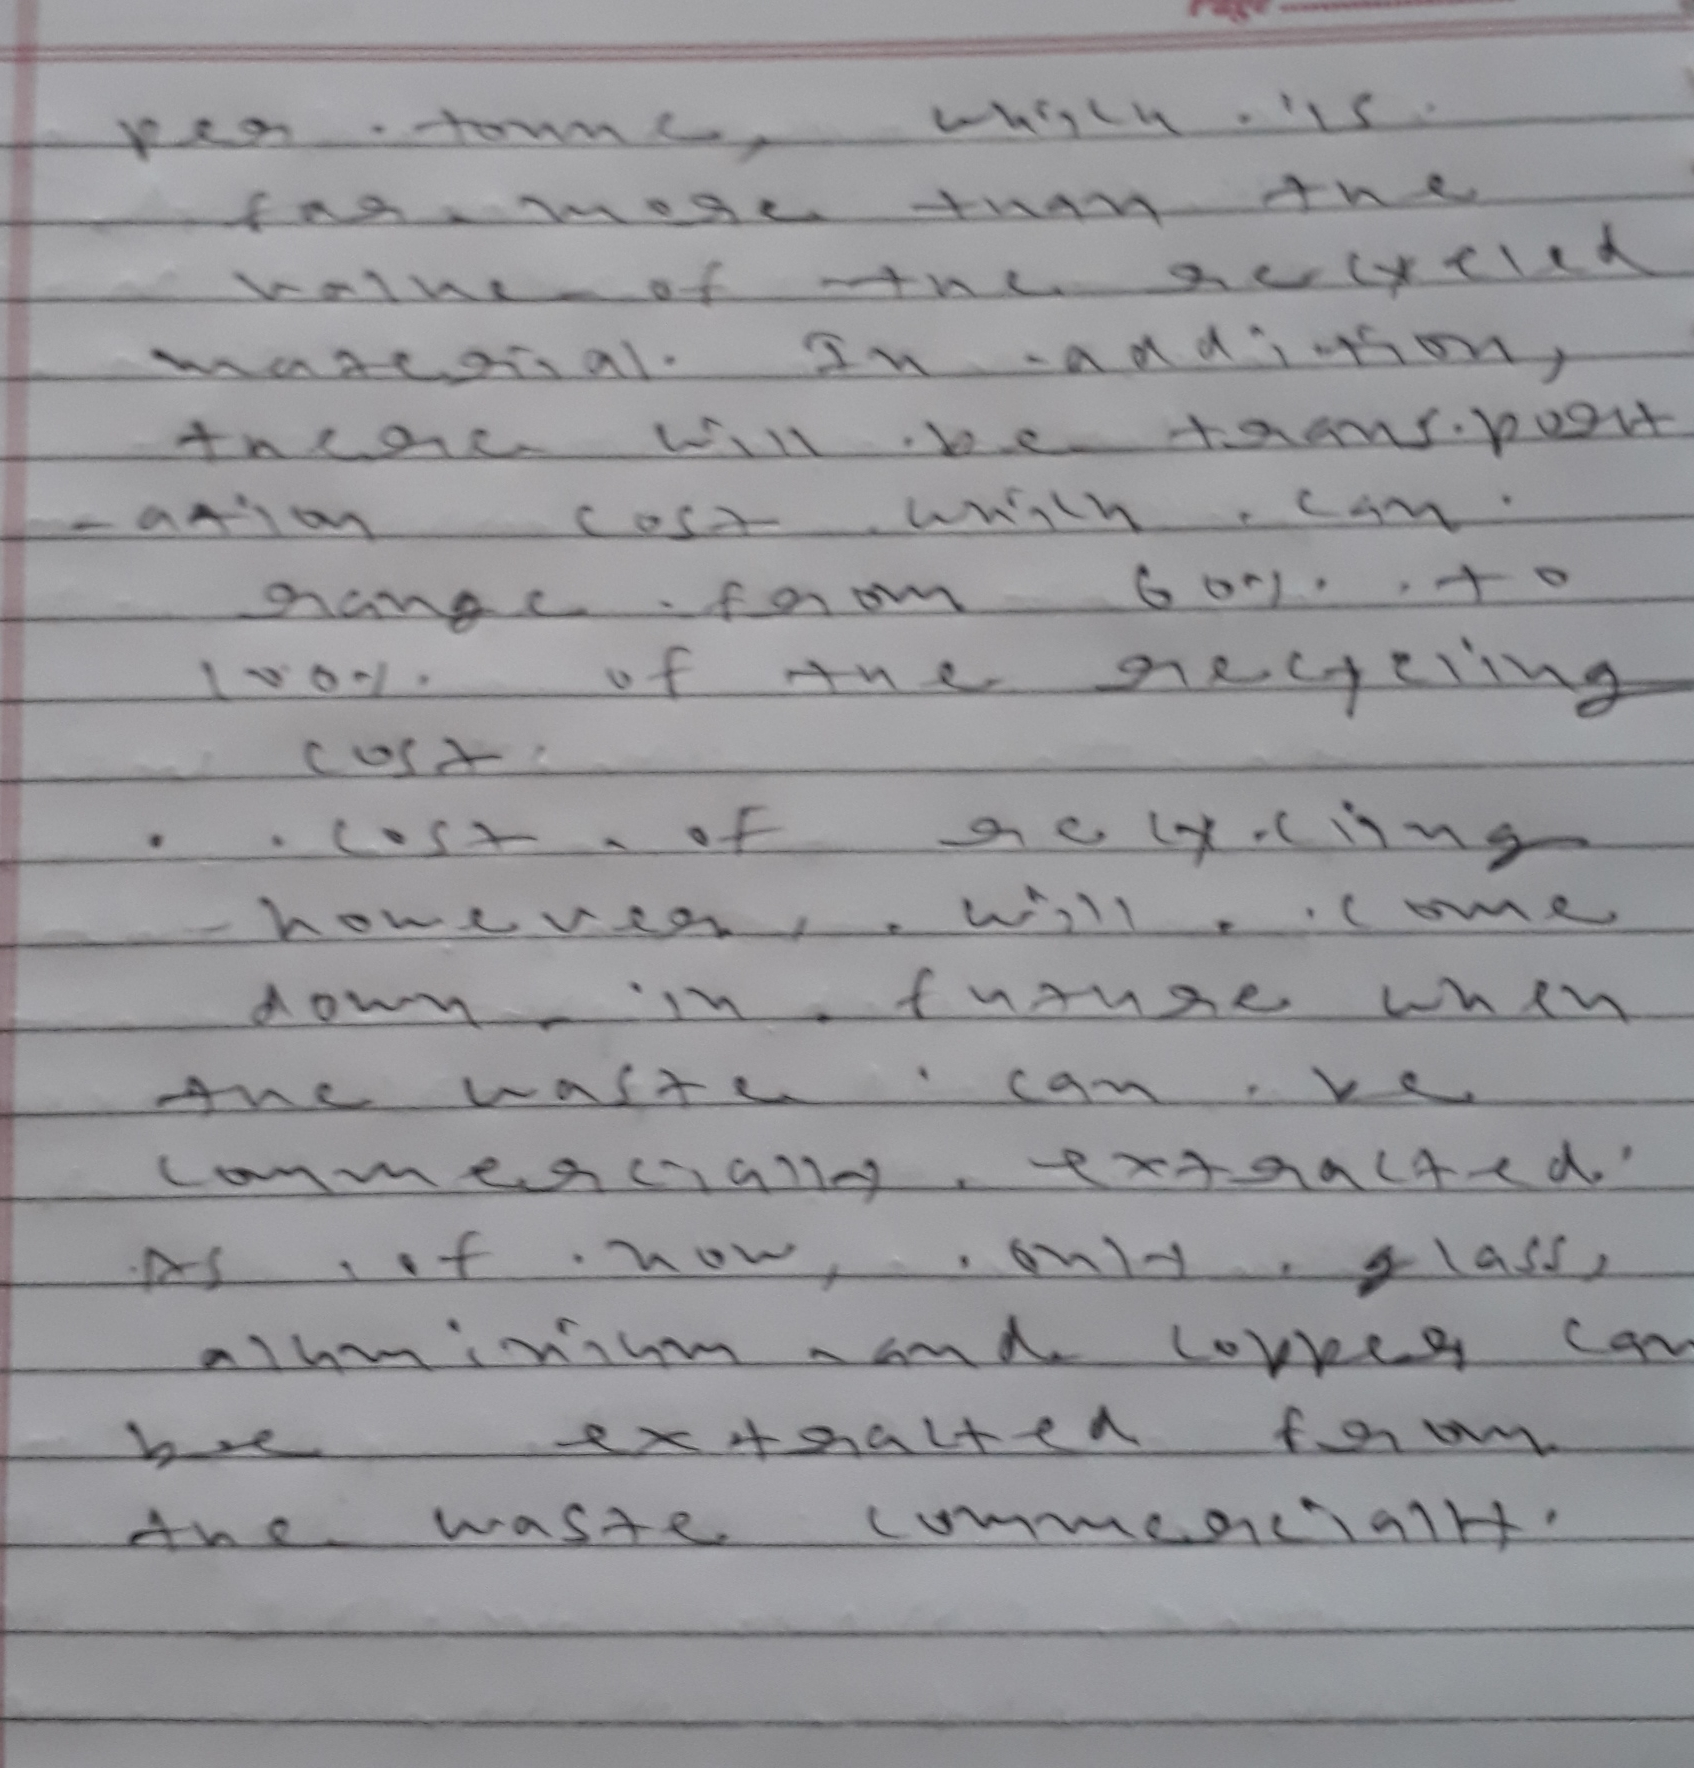 Page
per tonne, which is
far more than the
value of the recycled
material. In addition,
there will be transport
-ation cost which can
range from 60% to
100% of the recycling
cost.
• cost of recycling
however, will come
down in future when
the waste can be
commercially extracted.
As of now, only glass,
aluminium and copper can
be extracted from
the waste commercially.